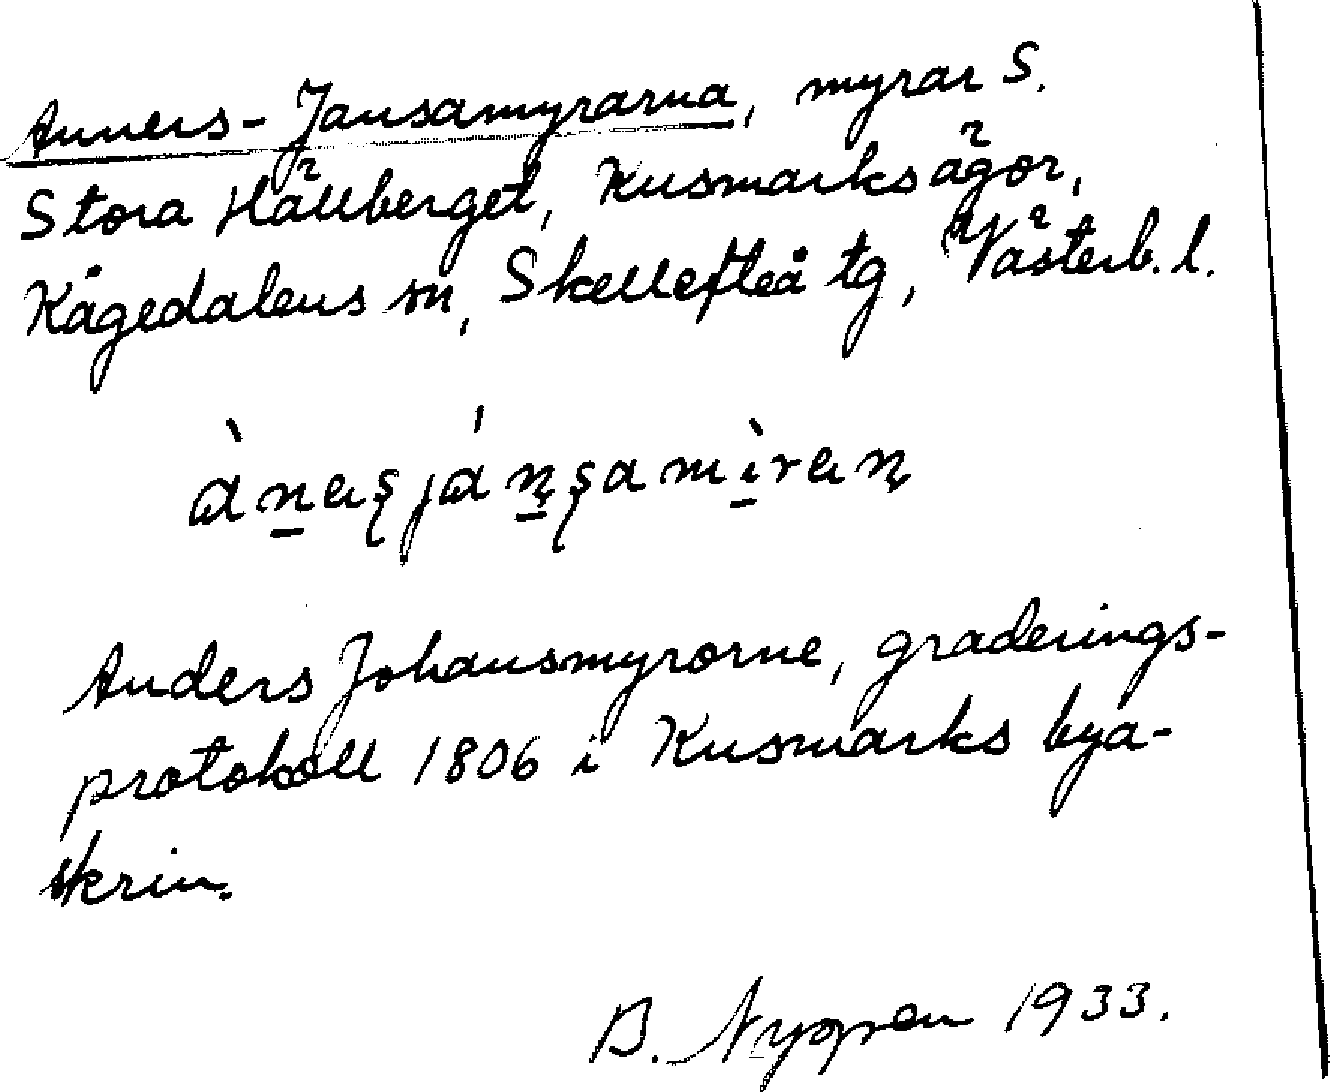 Anners-Jansamyrarna, myrar S.
Stora Hällberget, Kusmarks ägor,
Kågedalens sn, Skellefteå tg, Västerb. l.
Anders Johansmyrorne, graderings-
protokoll 1806 i Kusmarks bya-
skrin.
B. Nygren 1933.